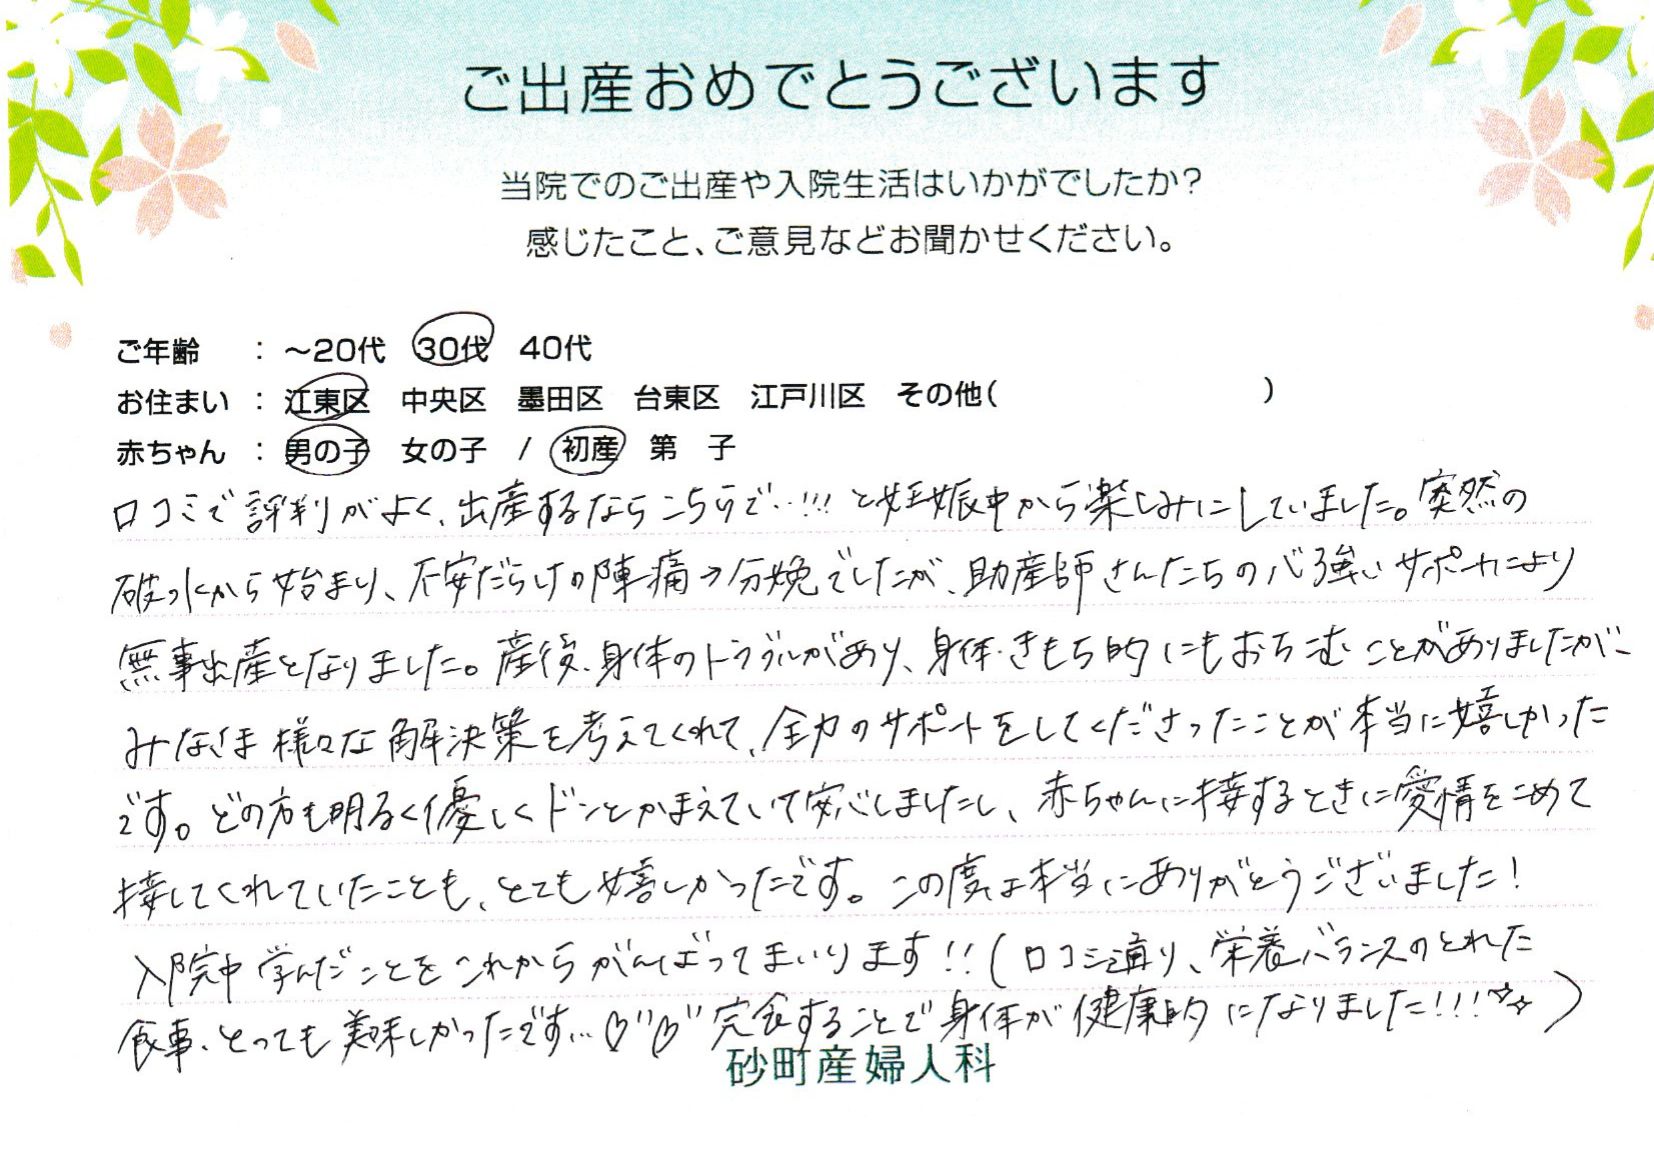 ご出産おめでとうございます
当院でのご出産や入院生活はいかがでしたか?
感じたこと、ご意見などお聞かせください。
ご年齢 : ～20代 30代 40代
お住まい : 江東区 中央区 墨田区 台東区 江戸川区 その他( )
赤ちゃん : 男の子 女の子 / 初産 第 子
口コミで評判がよく、出産するならこちらで…!!! と妊娠中から楽しみにしていました。突然の
破水から始まり、不安だらけの陣痛→分娩でしたが、助産師さんたちの心強いサポートにより
無事出産となりました。産後、身体のトラブルがあり、身体・きもち的にもおちこむことがありましたが、
みなさま様々な解決策を考えてくれて、全力のサポートをしてくださったことが本当に嬉しかった
です。どの方も明るく優しくドンとかまえていて安心しましたし、赤ちゃんに接するときに愛情をこめて
接してくれていたことも、とても嬉しかったです。この度は本当にありがとうございました!
入院中学んだことをこれからがんばってまいります!! (口コミ通り、栄養バランスのとれた
食事、とっても美味しかったです…♡"♡" 完食することで身体が健康的になりました!!!☆☆)
砂町産婦人科